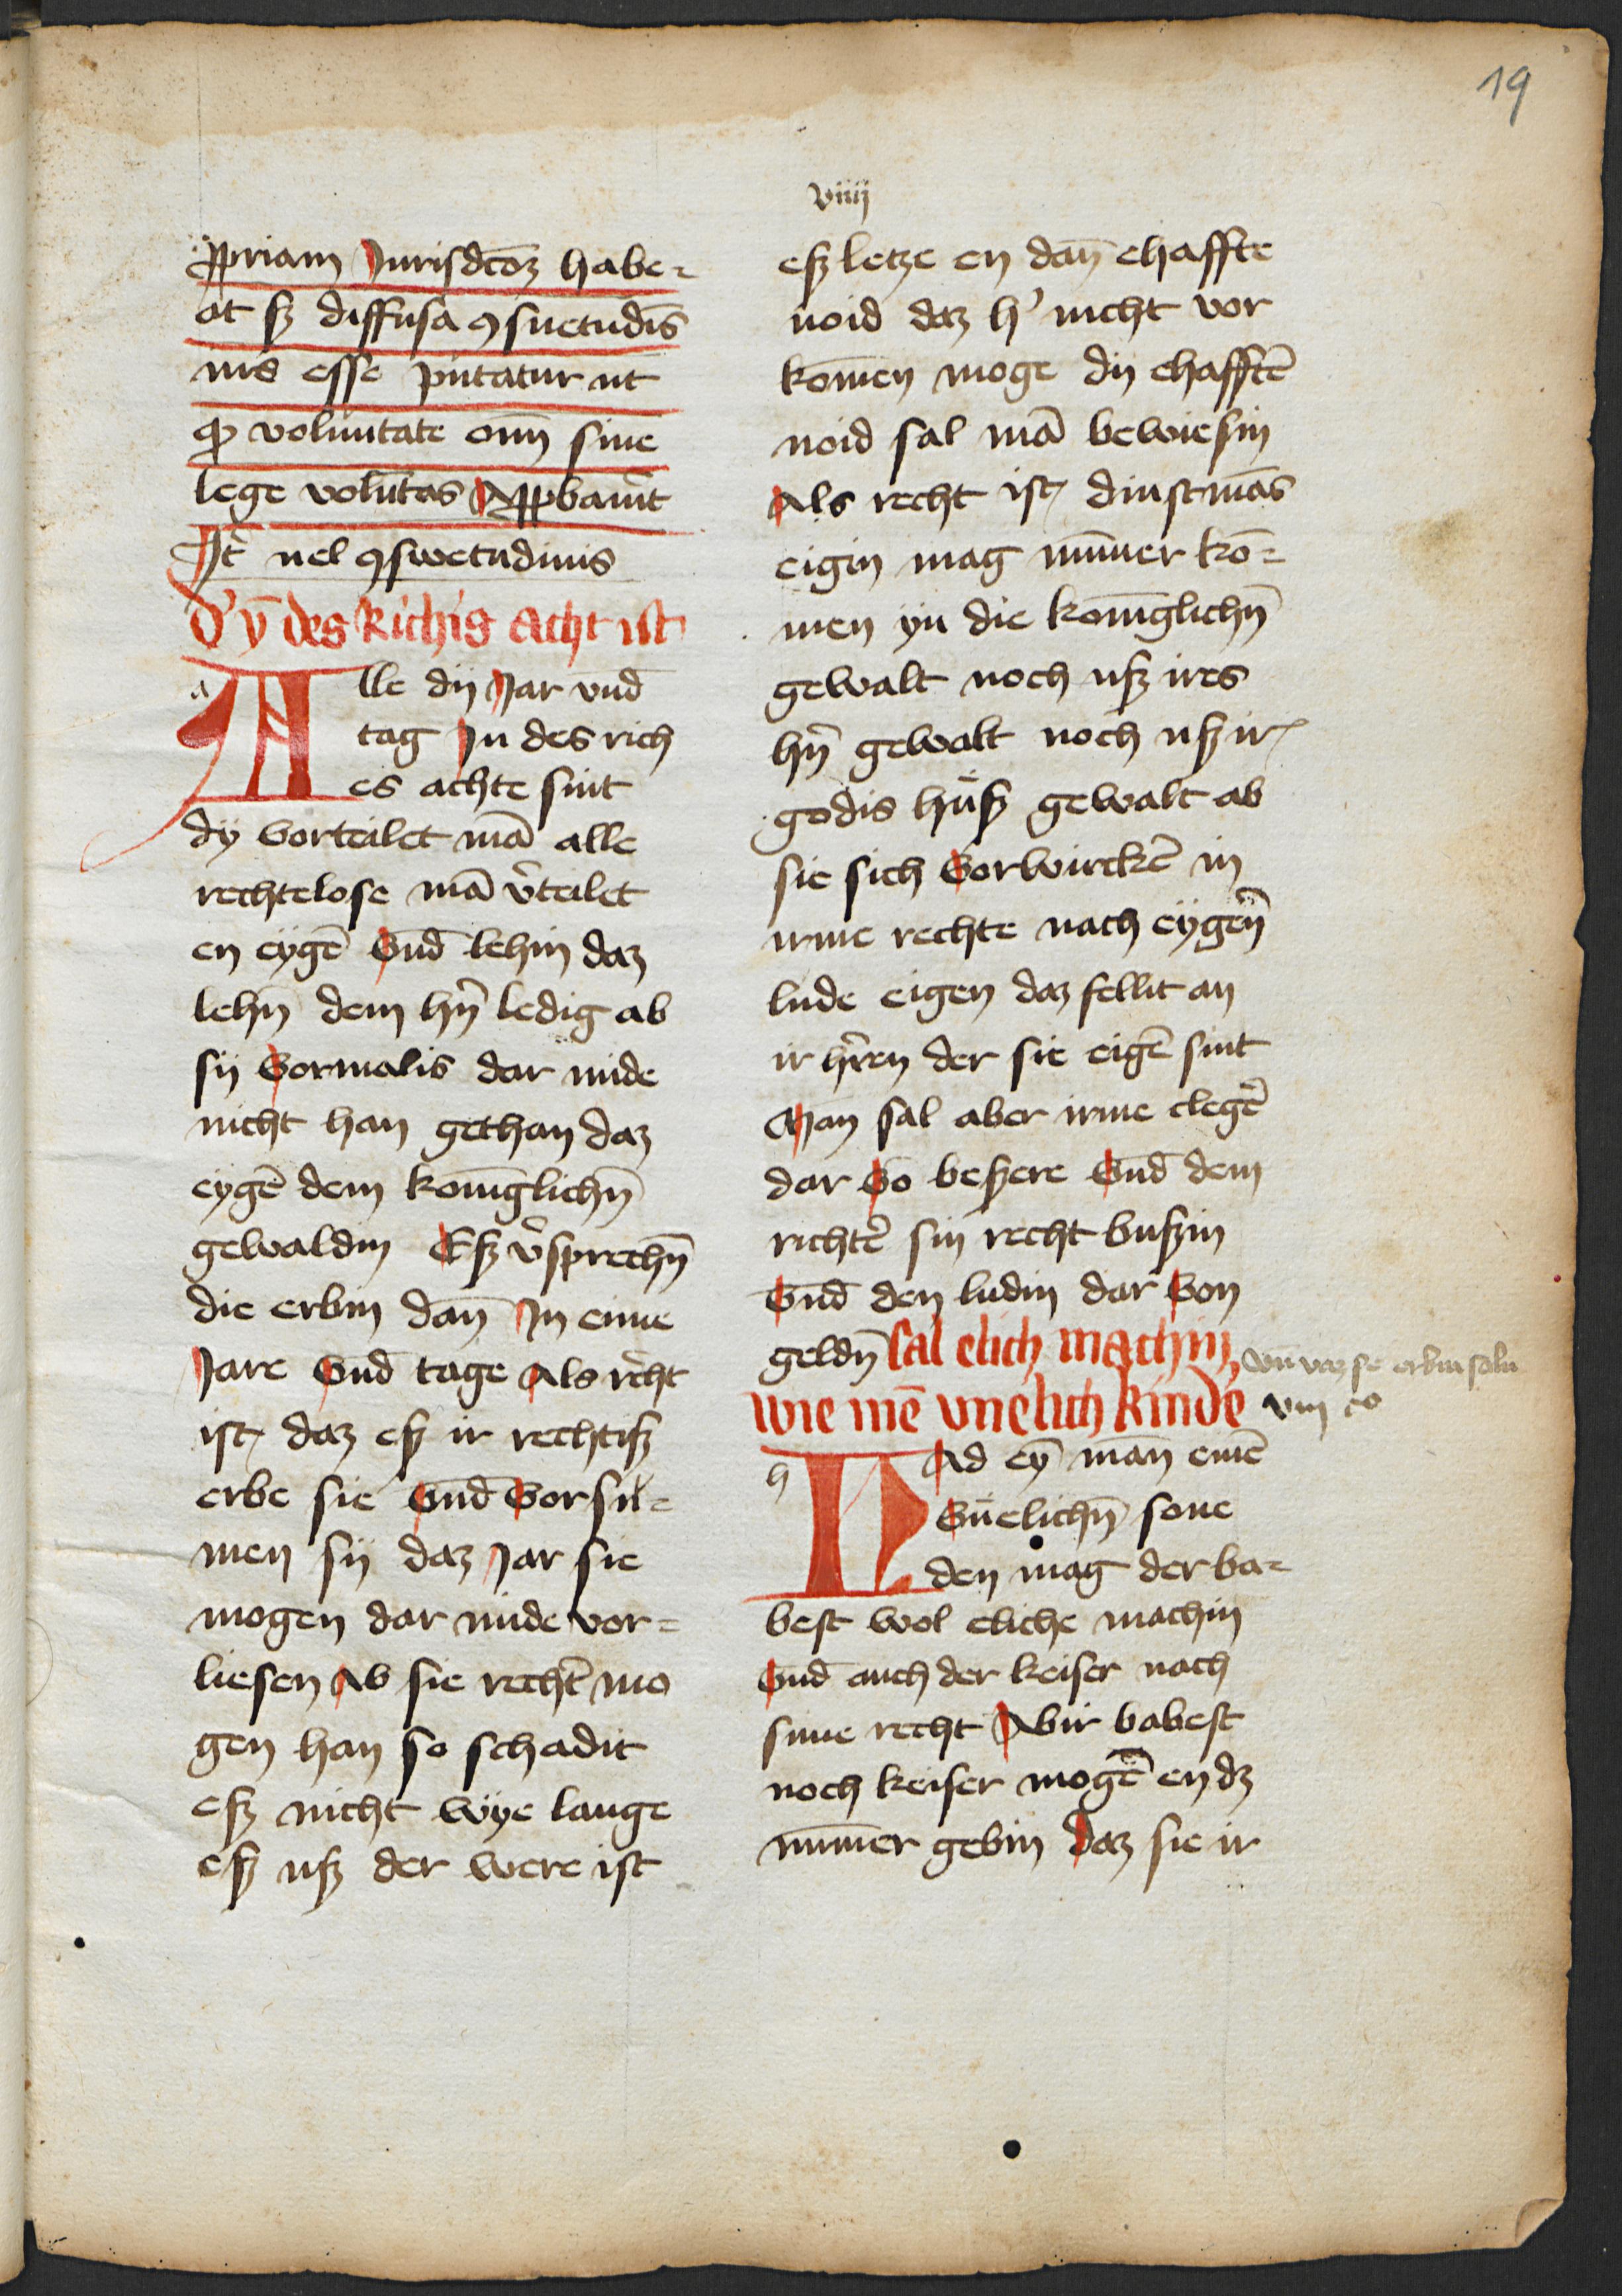 19
viiij
ꝓpriam Jurisdc̄oꝫ habe⸗
at sꝫ diffusa ꝯsuetudīs
ius esse putatur ut
ꝙ voluntate om̄ siue
lege volūtas Apꝓbauīt
It̄ uel ꝯswetudinis
d' ȳ des Richis acht ist
a
Alle dij Jar vnd̄
tag Jn des rich
es achte sint
dÿ vorteilet mā alle
rechtelose mā v̄teilet
en eÿgē vnd̄ lehin daz
lehn̄ dem hn̄ ledig ab
sij vormalis dar mide
nicht han gethan daz
eygē dem konīglichn̄
gewaldin Esz v̄sprechn̄
die erbin dan̄ Jn eime
Jare vnd̄ tage Als recht
ist daz esz ir rechtisz
erbe sie vnd̄ vorsu⸗
men sij daz Jar sie
mogen dar mide vor⸗
liesen Ab sie rechtē mo
gen han so schadit
esz nicht wÿe lange
esz usz der were ist
esz letze en dan̄ ehaffte
noid daz h' nicht vor
komen moge dij ehafftē
noid sal mā bewiesin
Als recht ist dinstmās
eigin mag nūmer ko⸗
men yn die konīglichn̄
gewalt noch usz ires
hn̄ gewalt noch usz ir
godis husz gewalt ab
sie sich vorwirckē in
irme rechte nach eÿgen̄
lude eigen daz fellit an
ir hr̄ren der sie eigē sint
Man sal aber irme clegē
dar vō beszere vnd̄ dem
richtē sin recht buszin
vnd̄ den ludin dar von
geldn̄ sal elich machin,
vn waz se erbin soln
wie mē vnelich kinde
viij co
h
HAd eȳ man̄ einē
vnelichn̄ sone
den mag der ba⸗
best wol eliche machin
vnd̄ auch der keiser nach
sime recht Abir babest
noch keiser mogē en dz
nūmer gebin daz sie ir